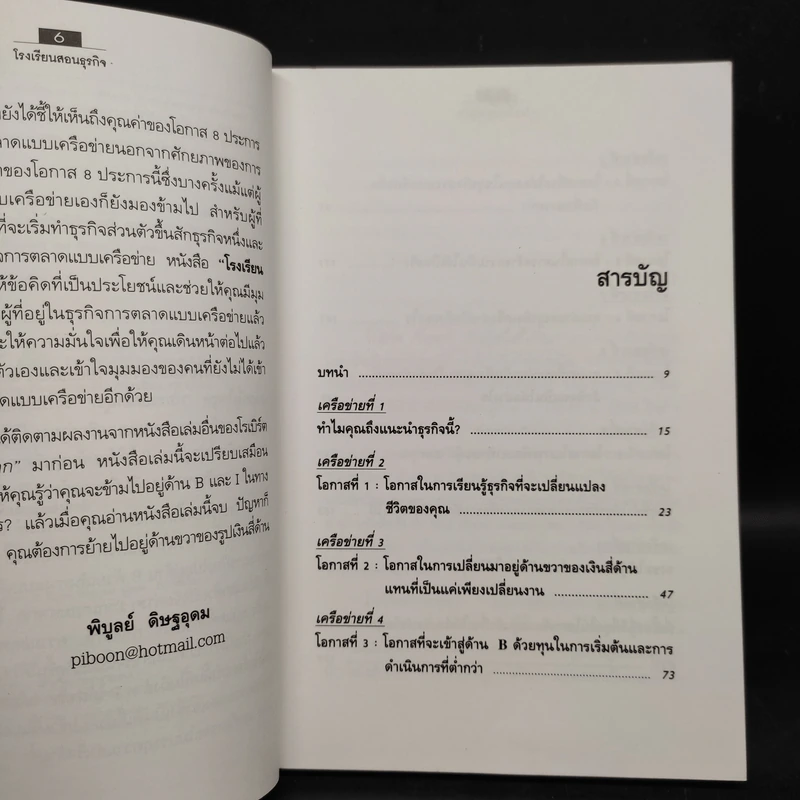 6
โรงเรียนสอนธุรกิจ
ยังได้ชี้ให้เห็นถึงคุณค่าของโอกาส 8 ประการ
ลาดแบบเครือข่ายนอกจากศักยภาพของการ
ของโอกาส 8 ประการนี้ซึ่งบางครั้งแม้แต่ผู้
บเครือข่ายเองก็ยังมองข้ามไป สำหรับผู้ที่
ที่จะเริ่มทำธุรกิจส่วนตัวขึ้นสักธุรกิจหนึ่งและ
การตลาดแบบเครือข่าย หนังสือ “โรงเรียน
ห้ข้อคิดที่เป็นประโยชน์และช่วยให้คุณมีมุม
ผู้ที่อยู่ในธุรกิจการตลาดแบบเครือข่ายแล้ว
ะให้ความมั่นใจเพื่อให้คุณเดินหน้าต่อไปแล้ว
ตัวเองและเข้าใจมุมมองของคนที่ยังไม่ได้เข้า
ดแบบเครือข่ายอีกด้วย
ด้ติดตามผลงานจากหนังสือเล่มอื่นของโรเบิร์ต
มาก่อน หนังสือเล่มนี้จะเปรียบเสมือน
ห้คุณรู้ว่าคุณจะข้ามไปอยู่ด้าน B และ I ในทาง
ร? แล้วเมื่อคุณอ่านหนังสือเล่มนี้จบ ปัญหาก็
คุณต้องการย้ายไปอยู่ด้านขวาของรูปเงินสี่ด้าน
พิบูลย์ ดิษฐอุดม
piboon@hotmail.com
สารบัญ
บทนำ 9
เครือข่ายที่ 1
ทำไมคุณถึงแนะนำธุรกิจนี้? 15
เครือข่ายที่ 2
โอกาสที่ 1 : โอกาสในการเรียนรู้ธุรกิจที่จะเปลี่ยนแปลง
ชีวิตของคุณ 23
เครือข่ายที่ 3
โอกาสที่ 2 : โอกาสในการเปลี่ยนมาอยู่ด้านขวาของเงินสี่ด้าน
แทนที่เป็นแค่เพียงเปลี่ยนงาน 47
เครือข่ายที่ 4
โอกาสที่ 3 : โอกาสที่จะเข้าสู่ด้าน B ด้วยทุนในการเริ่มต้นและการ
ดำเนินการที่ต่ำกว่า 73